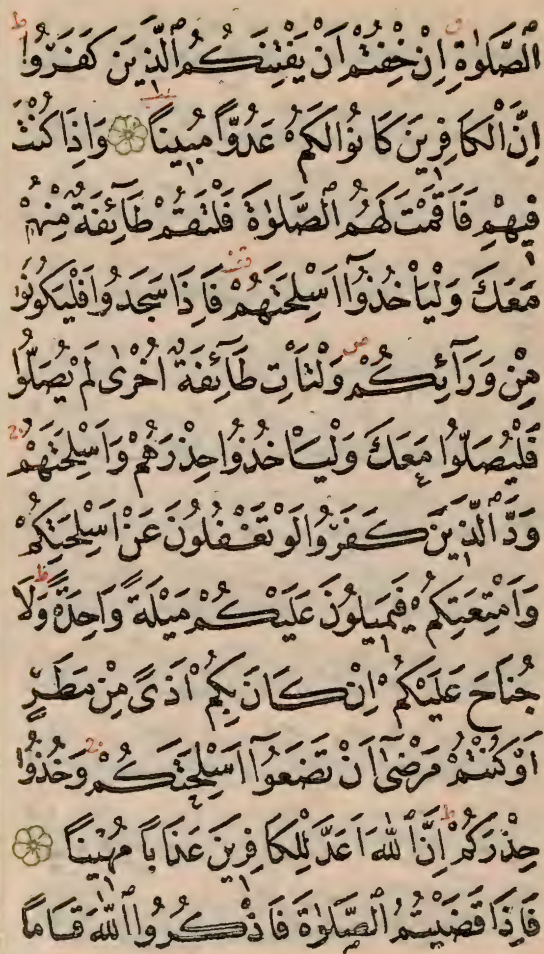 الصَّلٰوةِ اِنْ خِفْتُمْ اَنْ يَفْتِنَكُمُ الَّذِينَ كَفَرُوا
اِنَّ الْكَافِرِينَ كَانُوا لَكُمْ عَدُوًّا مُبِينًا وَاِذَا كُنْتَ
فِيهِمْ فَاَقَمْتَ لَهُمُ الصَّلٰوةَ فَلْتَقُمْ طَآئِفَةٌ مِنْهُمْ
مَعَكَ وَلْيَاْخُذُوٓا اَسْلِحَتَهُمْ فَاِذَا سَجَدُوا فَلْيَكُونُوا
مِنْ وَرَآئِكُمْ وَلْتَاْتِ طَآئِفَةٌ اُخْرٰى لَمْ يُصَلُّوا
فَلْيُصَلُّوا مَعَكَ وَلْيَاْخُذُوا حِذْرَهُمْ وَاَسْلِحَتَهُمْ
وَدَّ الَّذِينَ كَفَرُوا لَوْ تَغْفُلُونَ عَنْ اَسْلِحَتِكُمْ
وَاَمْتِعَتِكُمْ فَيَمِيلُونَ عَلَيْكُمْ مَيْلَةً وَاحِدَةً وَلَا
جُنَاحَ عَلَيْكُمْ اِنْ كَانَ بِكُمْ اَذًى مِنْ مَطَرٍ
اَوْ كُنْتُمْ مَرْضٰٓى اَنْ تَضَعُوٓا اَسْلِحَتَكُمْ وَخُذُوا
حِذْرَكُمْ اِنَّ اللّٰهَ اَعَدَّ لِلْكَافِرِينَ عَذَابًا مُهِينًا
فَاِذَا قَضَيْتُمُ الصَّلٰوةَ فَاذْكُرُوا اللّٰهَ قِيَامًا